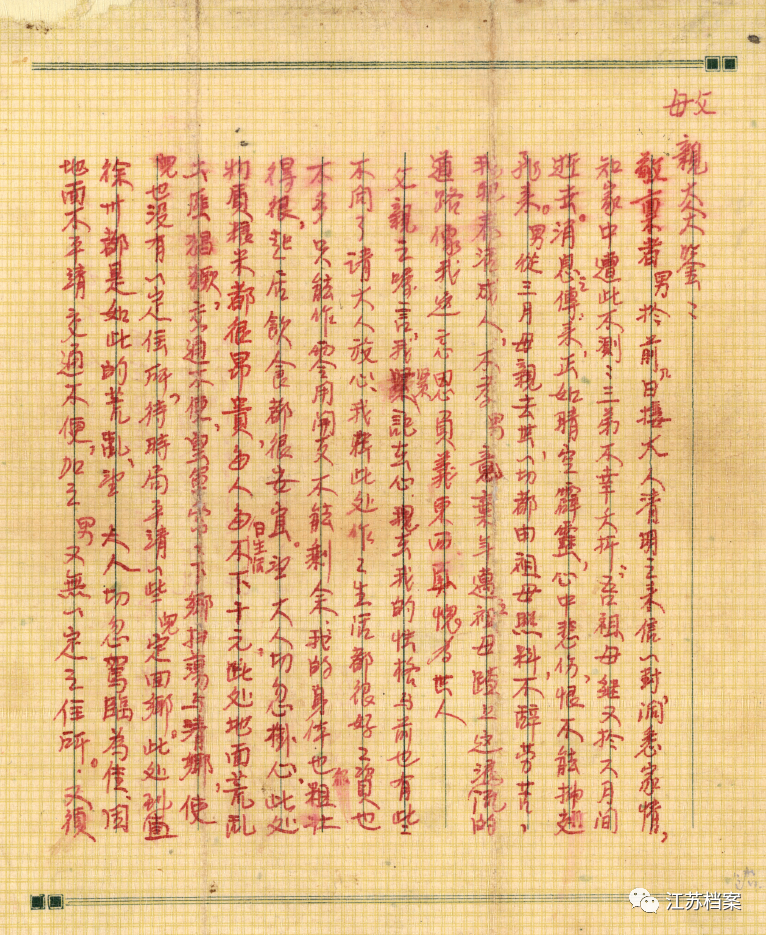 父母
親大人大鑒：
敬禀者男於前八日接大人清明之來信一封，洞悉家情，
知家中遭此不測：三弟不幸夭折，吾祖母繼又於六月間
逝去。消息之傳來，正如晴空霹靂，心中悲伤，恨不能抽翅
飛来。男從三月母親去世，一切都由祖母照料，不辞劳苦，
我now養活成人，不孝男竟棄年邁之祖母踏上这混流的
道路，像我这忘恩負義東西真愧為世人
父親之嚀言，我緊記在心，現在我的性格与前也有些
不同了，請大人放心。我在此处作工生活都很好，工資也
不多，只能作零用開支，不能剩余。我的身体也很粗壮
得很，起居飲食都很安宜。望大人切忽掛心。此处
物質粮米都很昂貴，每人每日生活不下千元。此处地面荒乱
土匪猖獗，交通不便，皇軍常下鄉扫蕩与清鄉，使
兒也沒有一定住所，待時局平靖一些兒定回鄉。此处到
徐州都是如此的荒亂，望大人切忽駕臨為佳，因
地面不平靖，交通不便，加之男又無一定之住所。又須
江苏档案